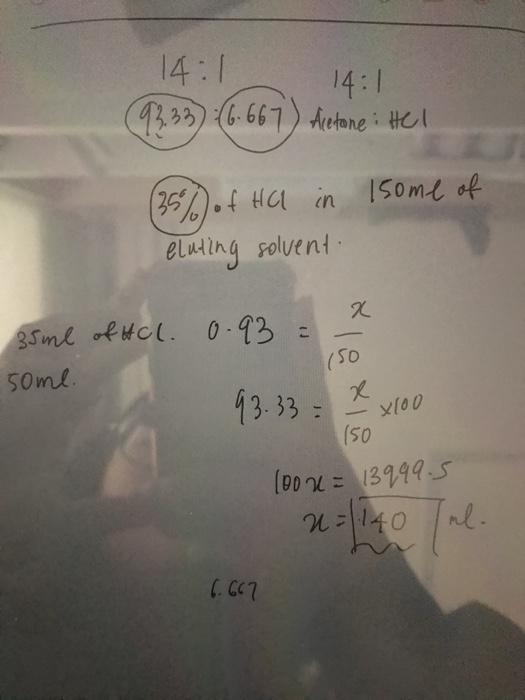 14:1 14:1
93.33 : 6.667 Acetone : HCl
35% of HCl in 150ml of
eluting solvent.
35ml of HCl. 0.93 = x
150
50ml.
93.33 = x ×100
150
100x = 13999.5
x = 140 ml.
6.667